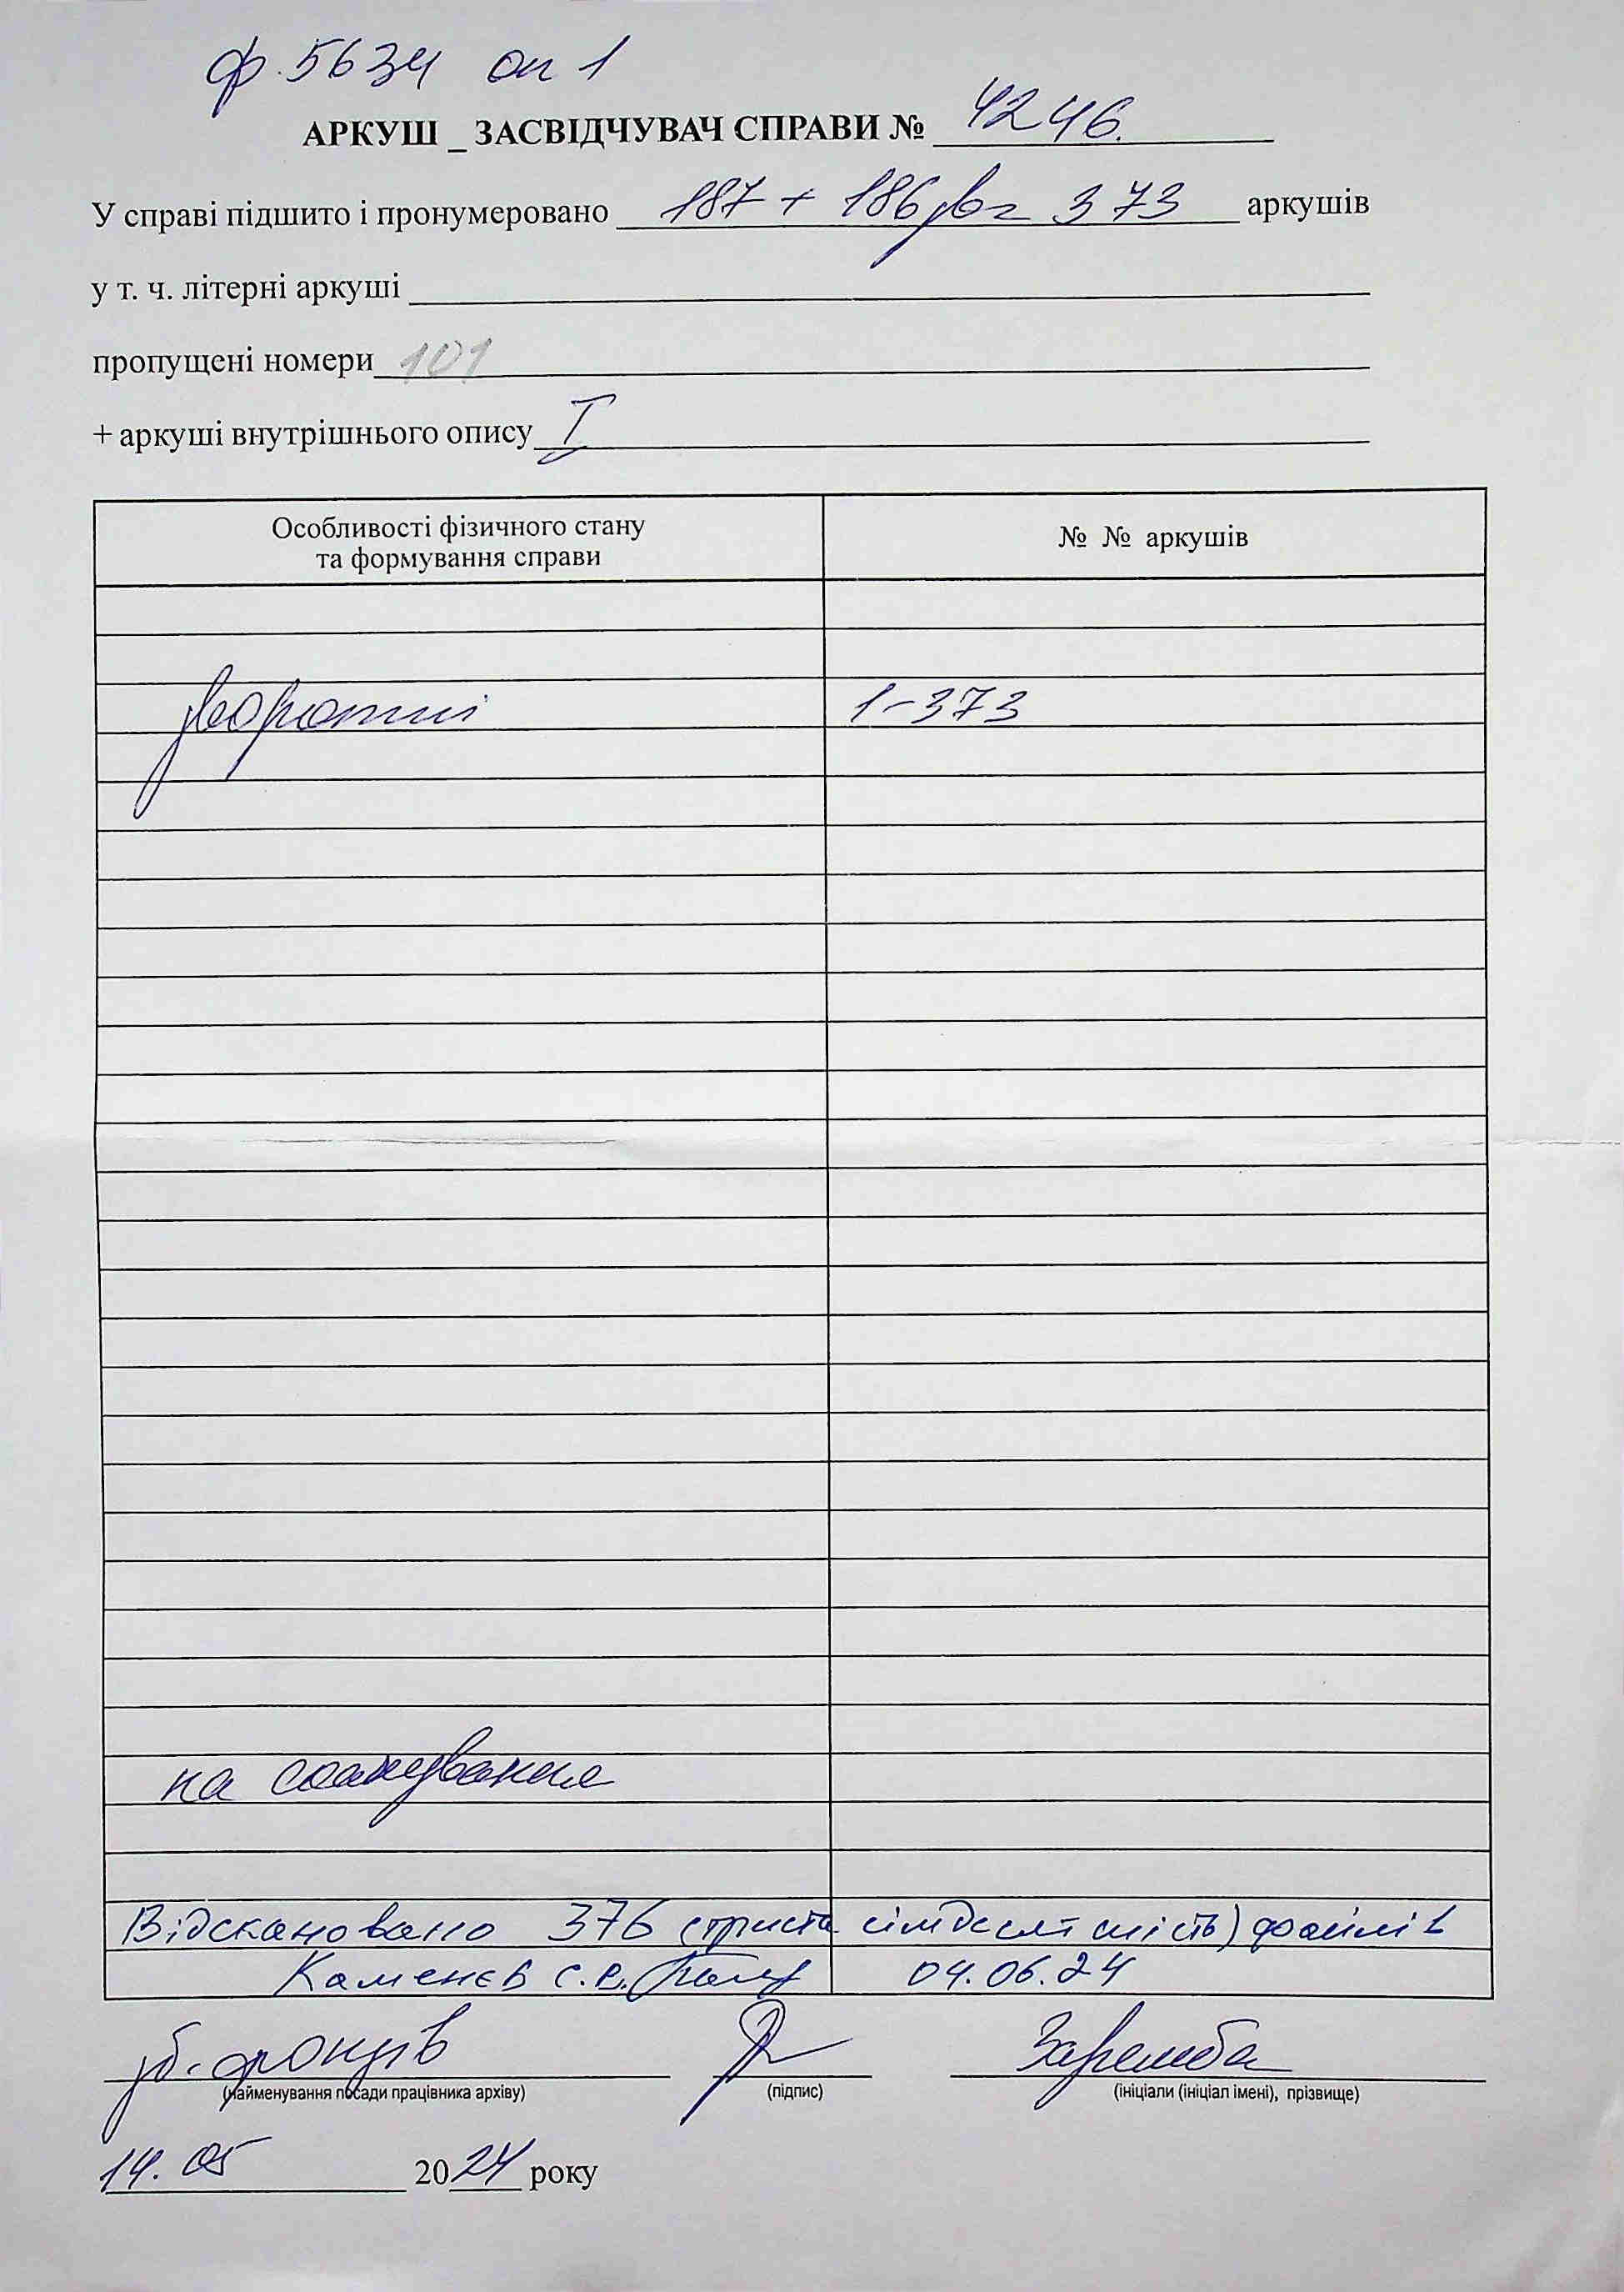 ф. 5634 оп 1
АРКУШ _ ЗАСВІДЧУВАЧ СПРАВИ № 4246.
У справі підшито і пронумеровано 187 + 186 зв = 373 аркушів
у т. ч. літерні аркуші
пропущені номери 101
+ аркуші внутрішнього опису I
Особливості фізичного стану
та формування справи
№ № аркушів
зворотні 1-373
на сканування
Відскановано 376 (триста сімдесят шість) файлів
Каменєв С.В. 04.06.24
зб. фондів Заремба
(найменування посади працівника архіву) (підпис) (ініціали (ініціал імені), прізвище)
14.05 2024 року